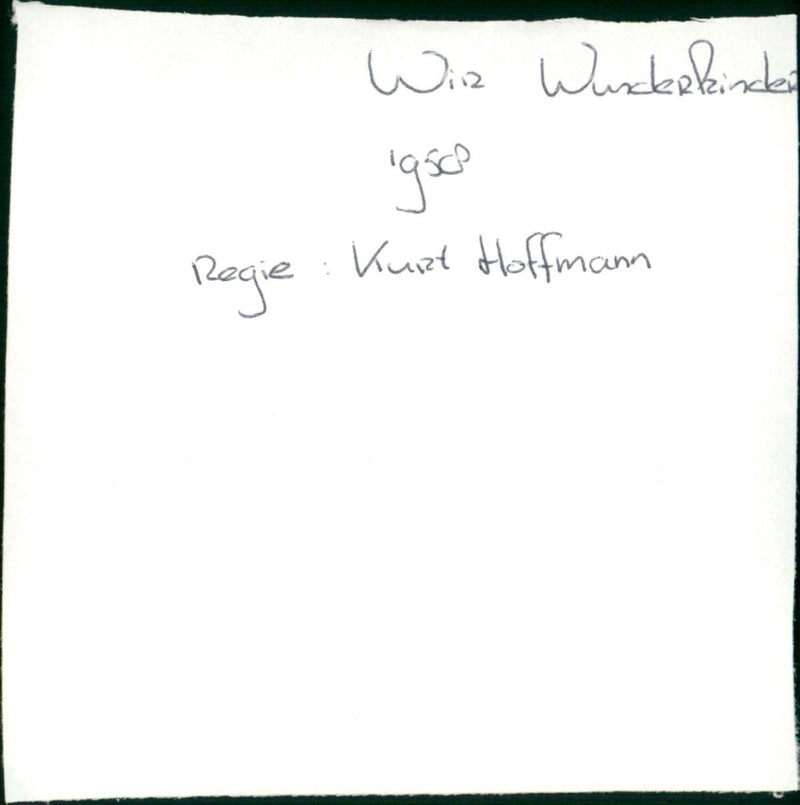 Wir Wunderkinder
1958
Regie : Kurt Hoffmann